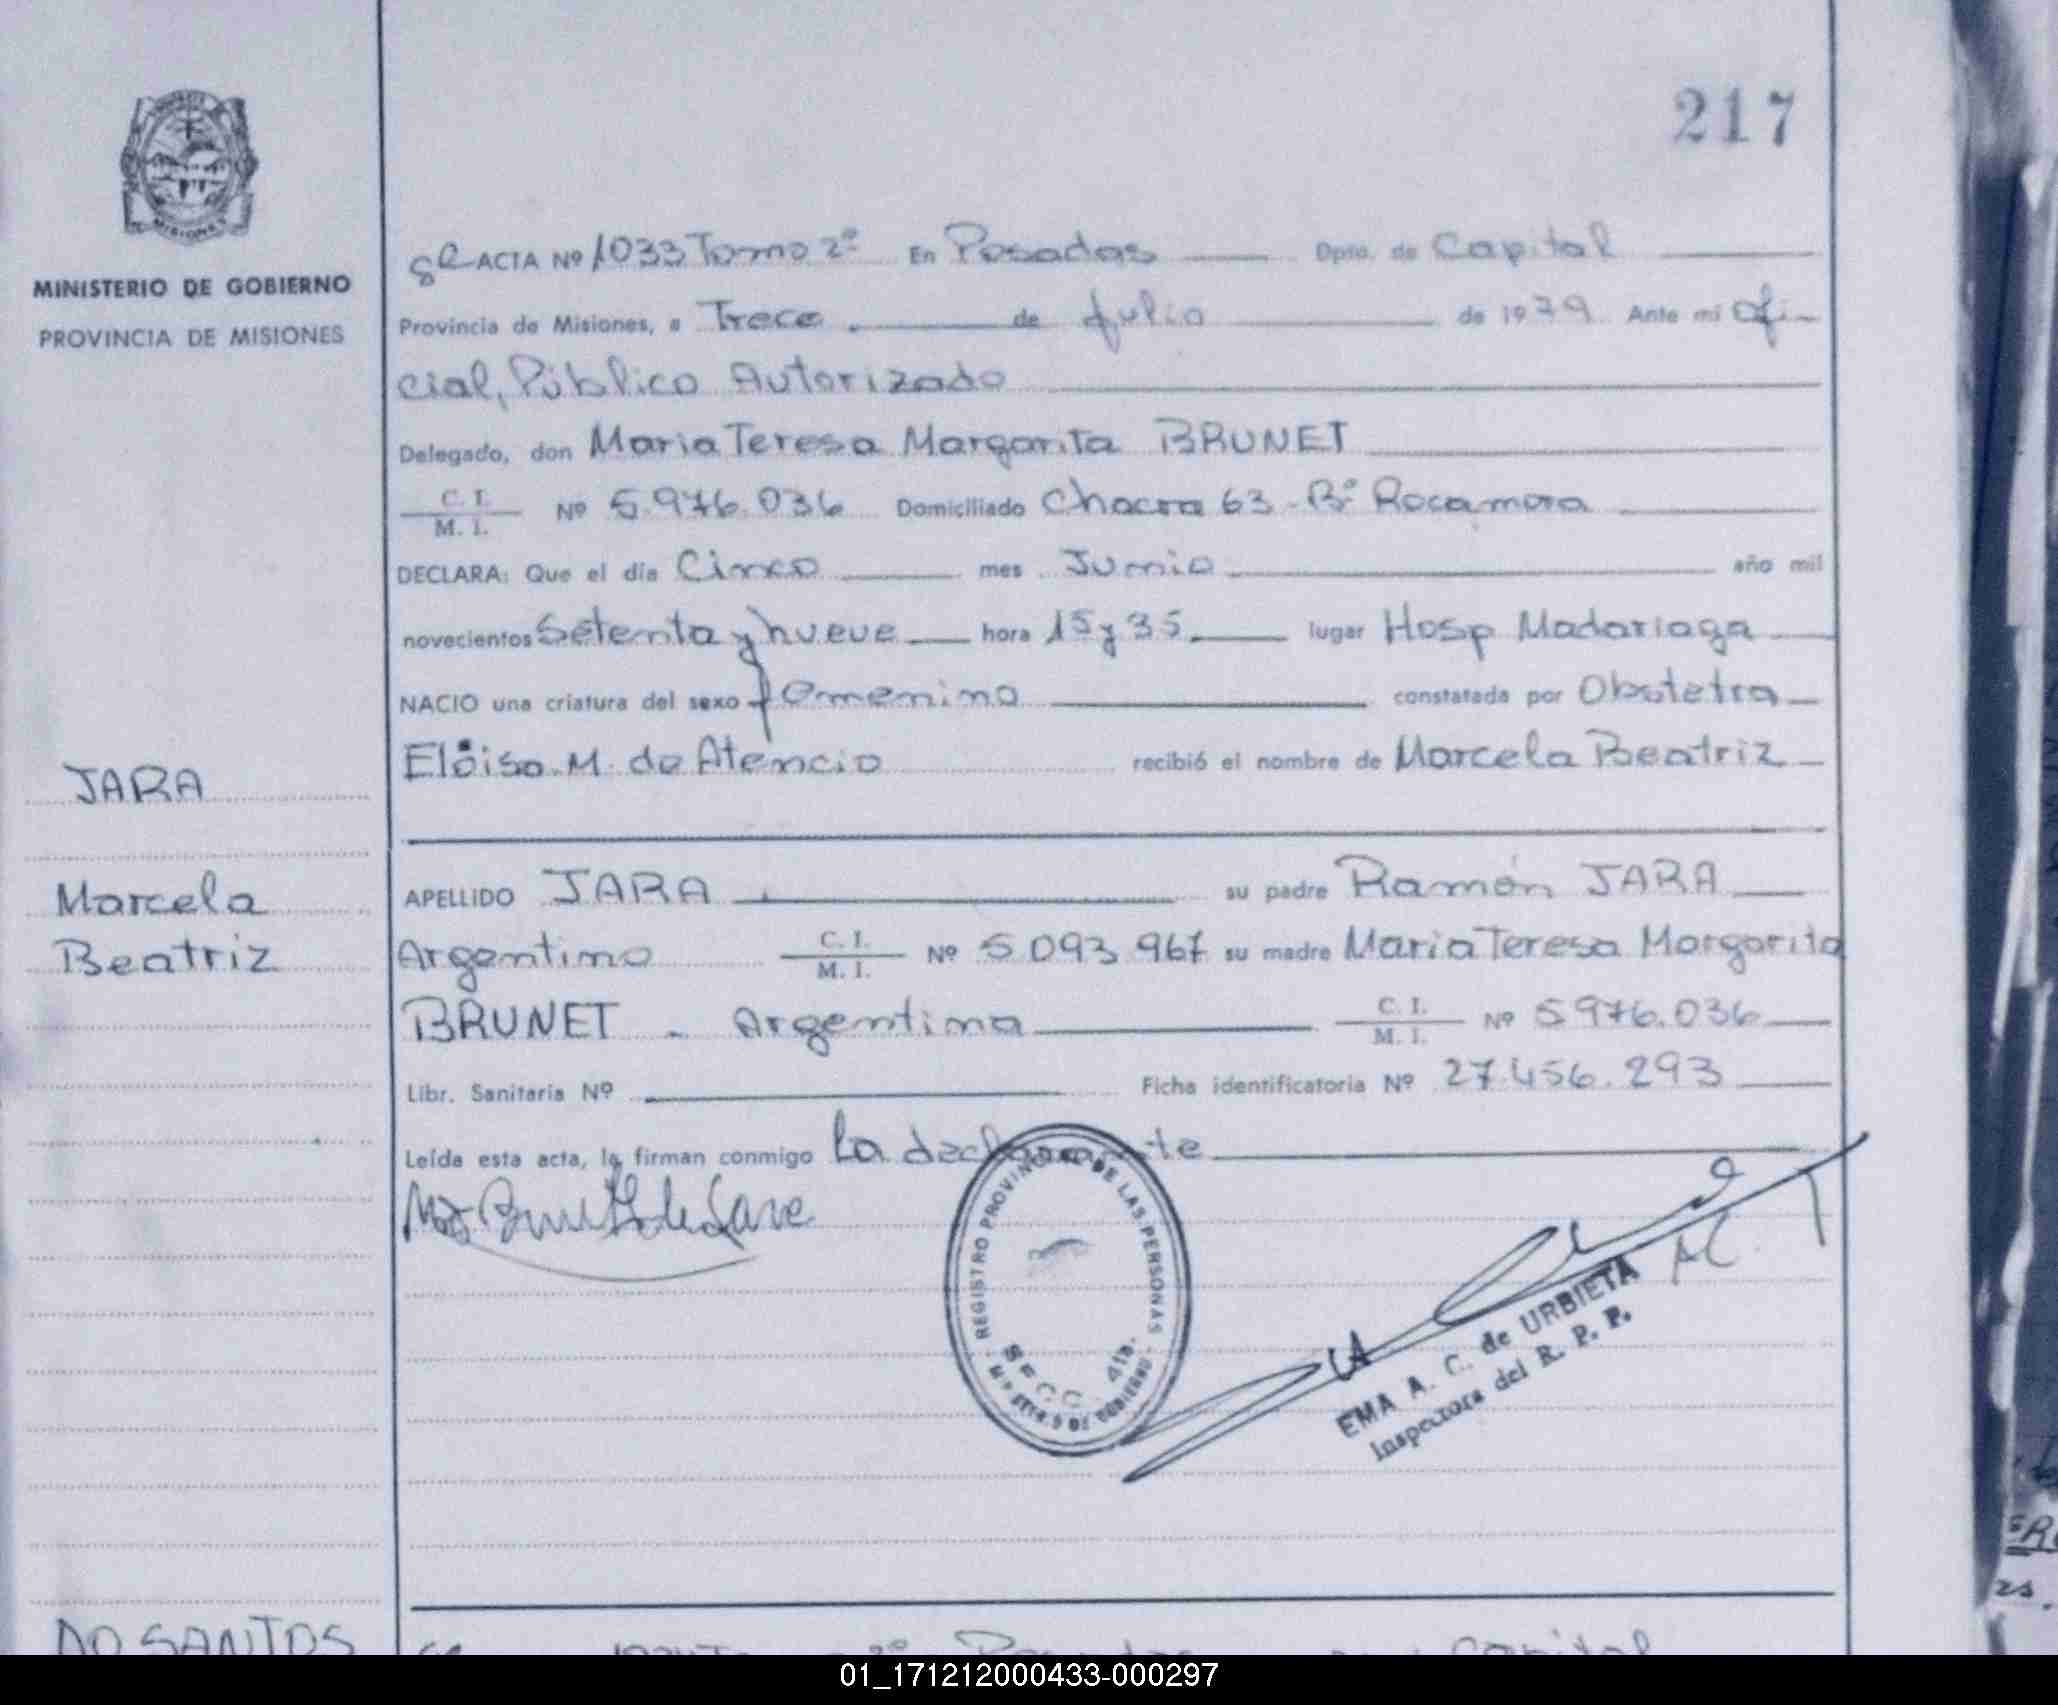 217
MISIONES
MINISTERIO DE GOBIERNO
PROVINCIA DE MISIONES
ACTA Nº 1033 Tomo 2º En Posadas Dpto. de Capital
Provincia de Misiones, a Trece de Julio de 1979 Ante mí Ofi-
cial, Público Autorizado
Delegado, don Maria Teresa Margarita BRUNET
C. I.
M. I. Nº 5.976.036 Domiciliado Chacra 63 - Bº Rocamora
DECLARA: Que el día Cinco mes Junio año mil
novecientos Setenta y nueve hora 15 y 35 lugar Hosp Madariaga
NACIO una criatura del sexo femenino constatada por Obstetra
Eloisa M. de Atencio recibió el nombre de Marcela Beatriz
JARA
Marcela
Beatriz
APELLIDO JARA su padre Ramón JARA
Argentino C. I.
M. I. Nº 5093967 su madre Maria Teresa Margarita
BRUNET - Argentina C. I.
M. I. Nº 5976.036
Libr. Sanitaria Nº Ficha identificatoria Nº 27.456.293
Leída esta acta, la firman conmigo la declarante
REGISTRO PROVINCIAL DE LAS PERSONAS
SECC. 4ta.
MINISTERIO DE GOBIERNO
EMA A. C. de URBIETA
Inspectora del R. P. P.
DO SANTOS
Capital
01_171212000433-000297